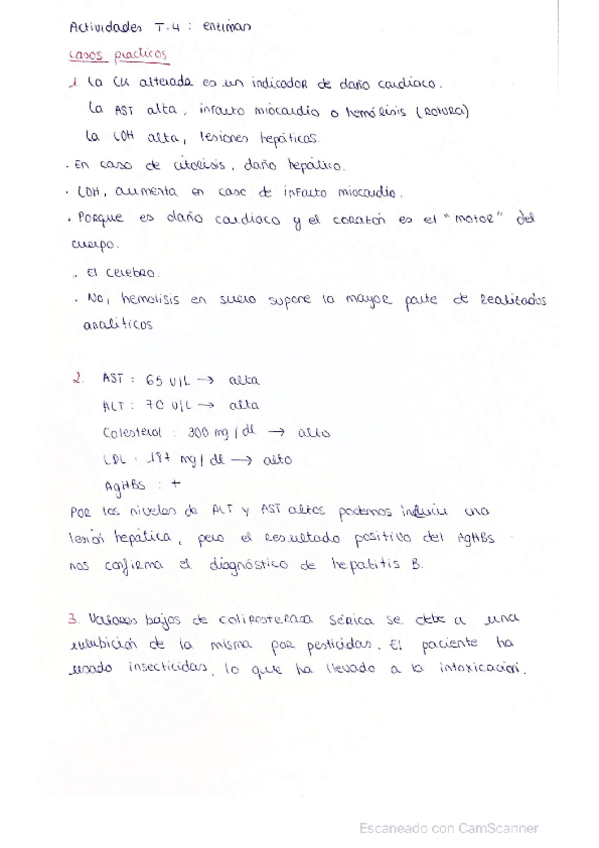 Actividades T.4 : enzimas
casos practicos
1. La CK alterada es un indicador de daño cardiaco.
La AST alta, infarto miocardio o hemólisis (rotura)
La LDH alta, lesiones hepáticas.
· En caso de citolisis, daño hepático.
· LDH, aumenta en caso de infarto miocardio.
· Porque es daño cardiaco y el corazón es el "motor" del
cuerpo.
· El cerebro.
· No, hemolisis en suero supone la mayor parte de
analiticos
2. AST : 65 U/L → alta
ALT : 70 U/L → alta
Colesterol : 300 mg/dl → alto
LDL : 187 mg/dl → alto
AgHBs : +
Por los niveles de ALT y AST altos podemos una
lesión hepática, pero el resultado positivo del AgHBs
nos confirma el diagnóstico de hepatitis B.
3. Valores bajos de sérica se debe a una
de la misma por pesticidas. El paciente ha
usado insecticidas, lo que ha llevado a la intoxicación.
Escaneado con CamScanner